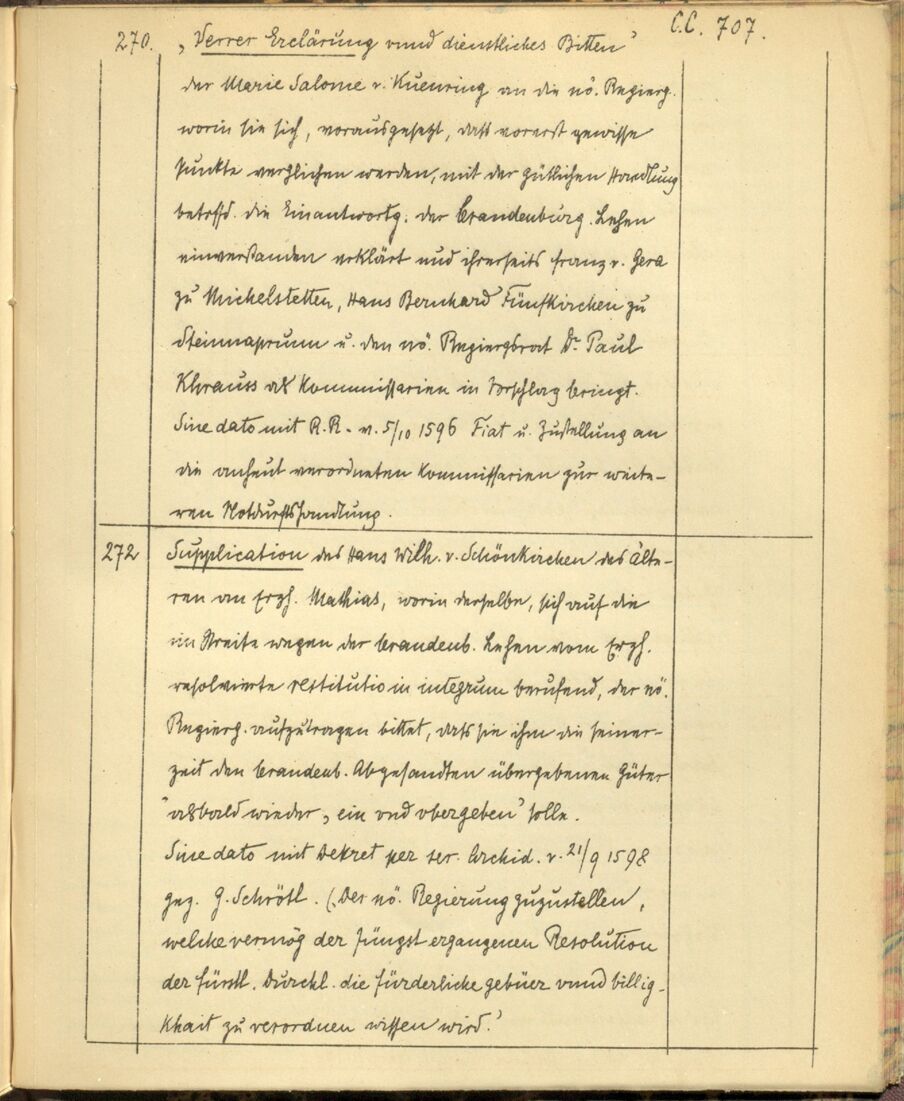 C.C. 707.
270. „Verrer Erclärung vnnd dienstliches Bitten“
der Marie Salome v. Kuenring an die nö. Regierg.
worin sie sich, vorausgesetzt, daß vorerst gewisse
Punkte verglichen werden, mit der gütlichen Handlung
betrffd. die Einantwortg. der brandenburg. Lehen
einverstanden erklärt und ihrerseits Franz v. Gera
zu Michelstetten, Hans Bernhard Fünfkirchen zu
Steinnaprunn u. den nö. Regiergsrat Dr. Paul
Khrauss als Kommissarien in Vorschlag bringt.
Sine dato mit R.R. v. 5/10 1596 Fiat u. Zustellung an
die anheut verordneten Kommissarien zur weite-
ren Notdurftshandlung.
272 Supplication des Hans Wilh. v. Schönkirchen des Älte-
ren an Erzh. Mathias, worin derselbe, sich auf die
im Streite wegen der brandenb. Lehen vom Erzh.
resolvierte restitutio in integrum berufend, der nö.
Regierg. aufzutragen bittet, daß sie ihm die seiner-
zeit den brandenb. Abgesandten übergebenen Güter
alsbald wieder „ein vnd vbergeben“ solle.
Sine dato mit Dekret per ser. Archid. v. 21/9 1598
gez. G. Schrötl. („Der nö. Regierung zuzustellen,
welche vermög der jüngst ergangenen Resolution
der fürstl. Durchl. die fürderliche gebüer vnnd billig-
khait zu verordnen wissen wird.“